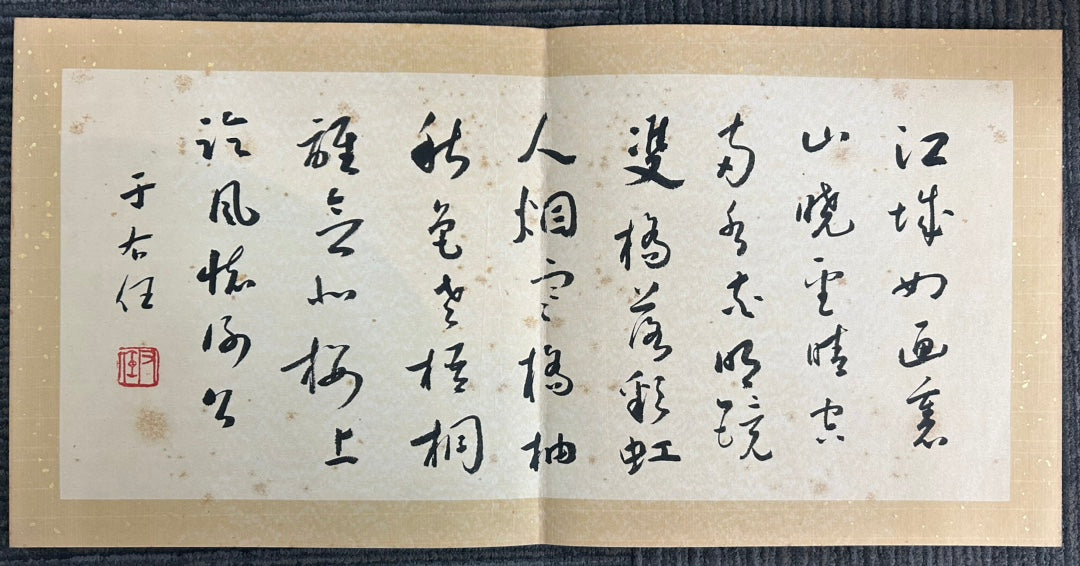 江城如畫裏
山曉望晴空
兩水夾明鏡
雙橋落彩虹
人烟寒橘柚
秋色老梧桐
誰念北樓上
臨風懷謝公
于右任
右任